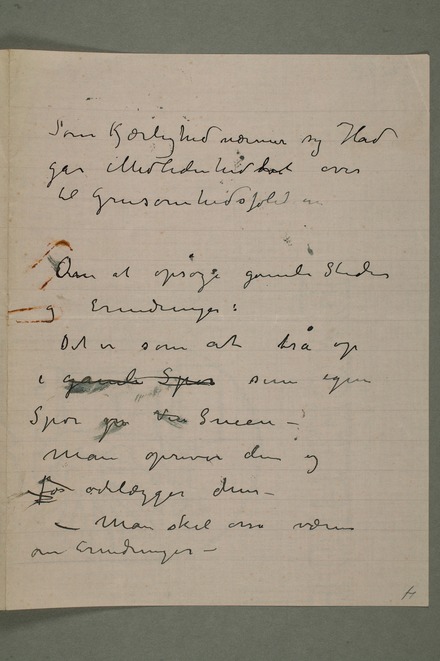 Som Kjærlighed nærmer sig Had
går Medlidenhed over
til Grusomhedsfølel
Om at opsøge gamle Steder
og Erindringer:
Det er som at trå op
i gamle Spor sine egne
Spor på Sneen –
Man opriver dem og
ødelægger dem –
– Man skal være
om Erindringer –
H